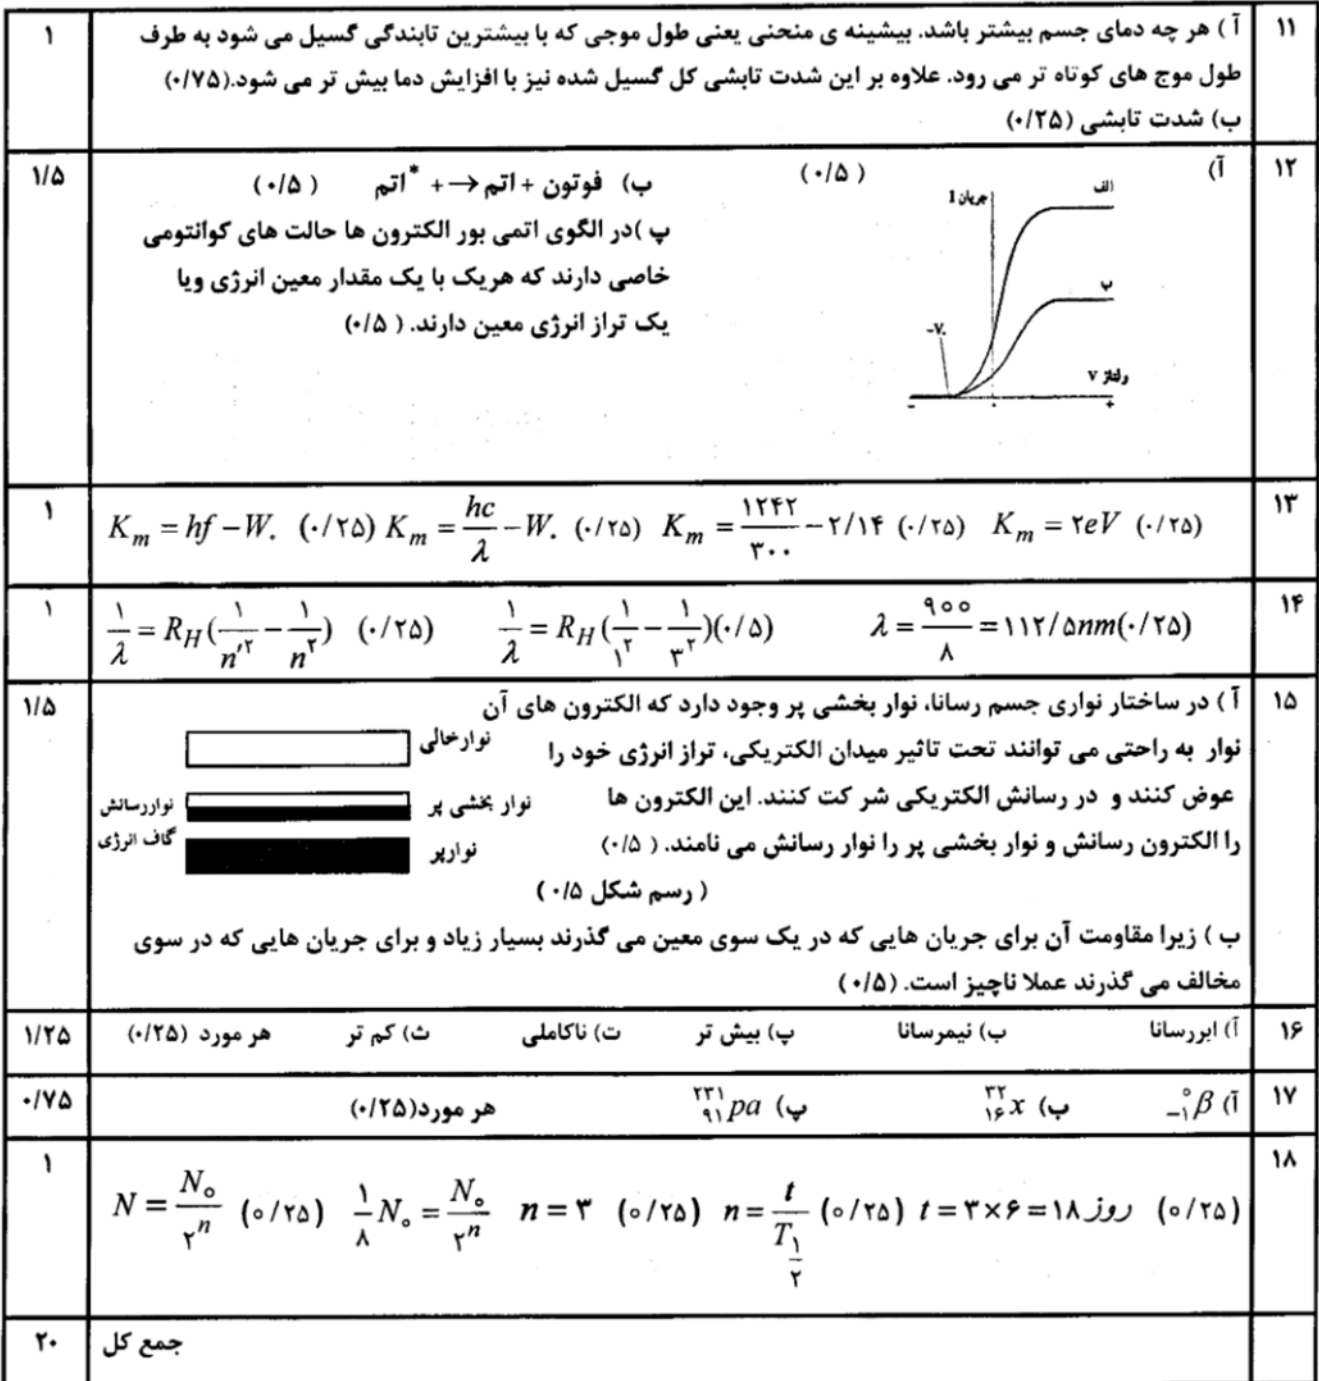 ۱۱ آ ) هر چه دمای جسم بیشتر باشد. بیشینه ی منحنی یعنی طول موجی که با بیشترین تابندگی گسیل می شود به طرف ۱
طول موج های کوتاه تر می رود. علاوه بر این شدت تابشی کل گسیل شده نیز با افزایش دما بیش تر می شود.(۰/۷۵)
ب) شدت تابشی (۰/۲۵)
۱۲ آ) (۰/۵ ) ب) فوتون + اتم → + *اتم (۰/۵ ) ۱/۵
الف
جریان I
ب
-V۰
ولتاژ V
- ۰ +
پ )در الگوی اتمی بور الکترون ها حالت های کوانتومی
خاصی دارند که هریک با یک مقدار معین انرژی ویا
یک تراز انرژی معین دارند. ( ۰/۵)
۱۳ K_m = hf - W۰ (۰/۲۵) K_m = hc/λ - W۰ (۰/۲۵) K_m = ۱۲۴۲/۳۰۰ - ۲/۱۴ (۰/۲۵) K_m = ۲eV (۰/۲۵) ۱
۱۴ ۱/λ = R_H(۱/n′^۲ - ۱/n^۲) (۰/۲۵) ۱/λ = R_H(۱/۱^۲ - ۱/۳^۲)(۰/۵) λ = ۹۰۰/۸ = ۱۱۲/۵nm(۰/۲۵) ۱
۱۵ آ ) در ساختار نواری جسم رسانا، نوار بخشی پر وجود دارد که الکترون های آن ۱/۵
نوار به راحتی می توانند تحت تاثیر میدان الکتریکی، تراز انرژی خود را
عوض کنند و در رسانش الکتریکی شر کت کنند. این الکترون ها
را الکترون رسانش و نوار بخشی پر را نوار رسانش می نامند. ( ۰/۵)
( رسم شکل ۰/۵ )
نوارخالی
نوار بخشی پر
نواررسانش
گاف انرژی
نوارپر
ب ) زیرا مقاومت آن برای جریان هایی که در یک سوی معین می گذرند بسیار زیاد و برای جریان هایی که در سوی
مخالف می گذرند عملا ناچیز است. (۰/۵ )
۱۶ آ) ابررسانا ب) نیمرسانا پ) بیش تر ت) ناکاملی ث) کم تر هر مورد (۰/۲۵) ۱/۲۵
۱۷ آ) ₋₁⁰β ب) ^۳۲_۱۶ x پ) ^۲۳۱_۹۱ pa هر مورد(۰/۲۵) ۰/۷۵
۱۸ N = N۰/۲^n (۰/۲۵) ۱/۸ N۰ = N۰/۲^n n = ۳ (۰/۲۵) n = t/T_۱/۲ (۰/۲۵) t = ۳×۶ = ۱۸ روز (۰/۲۵) ۱
جمع کل ۲۰